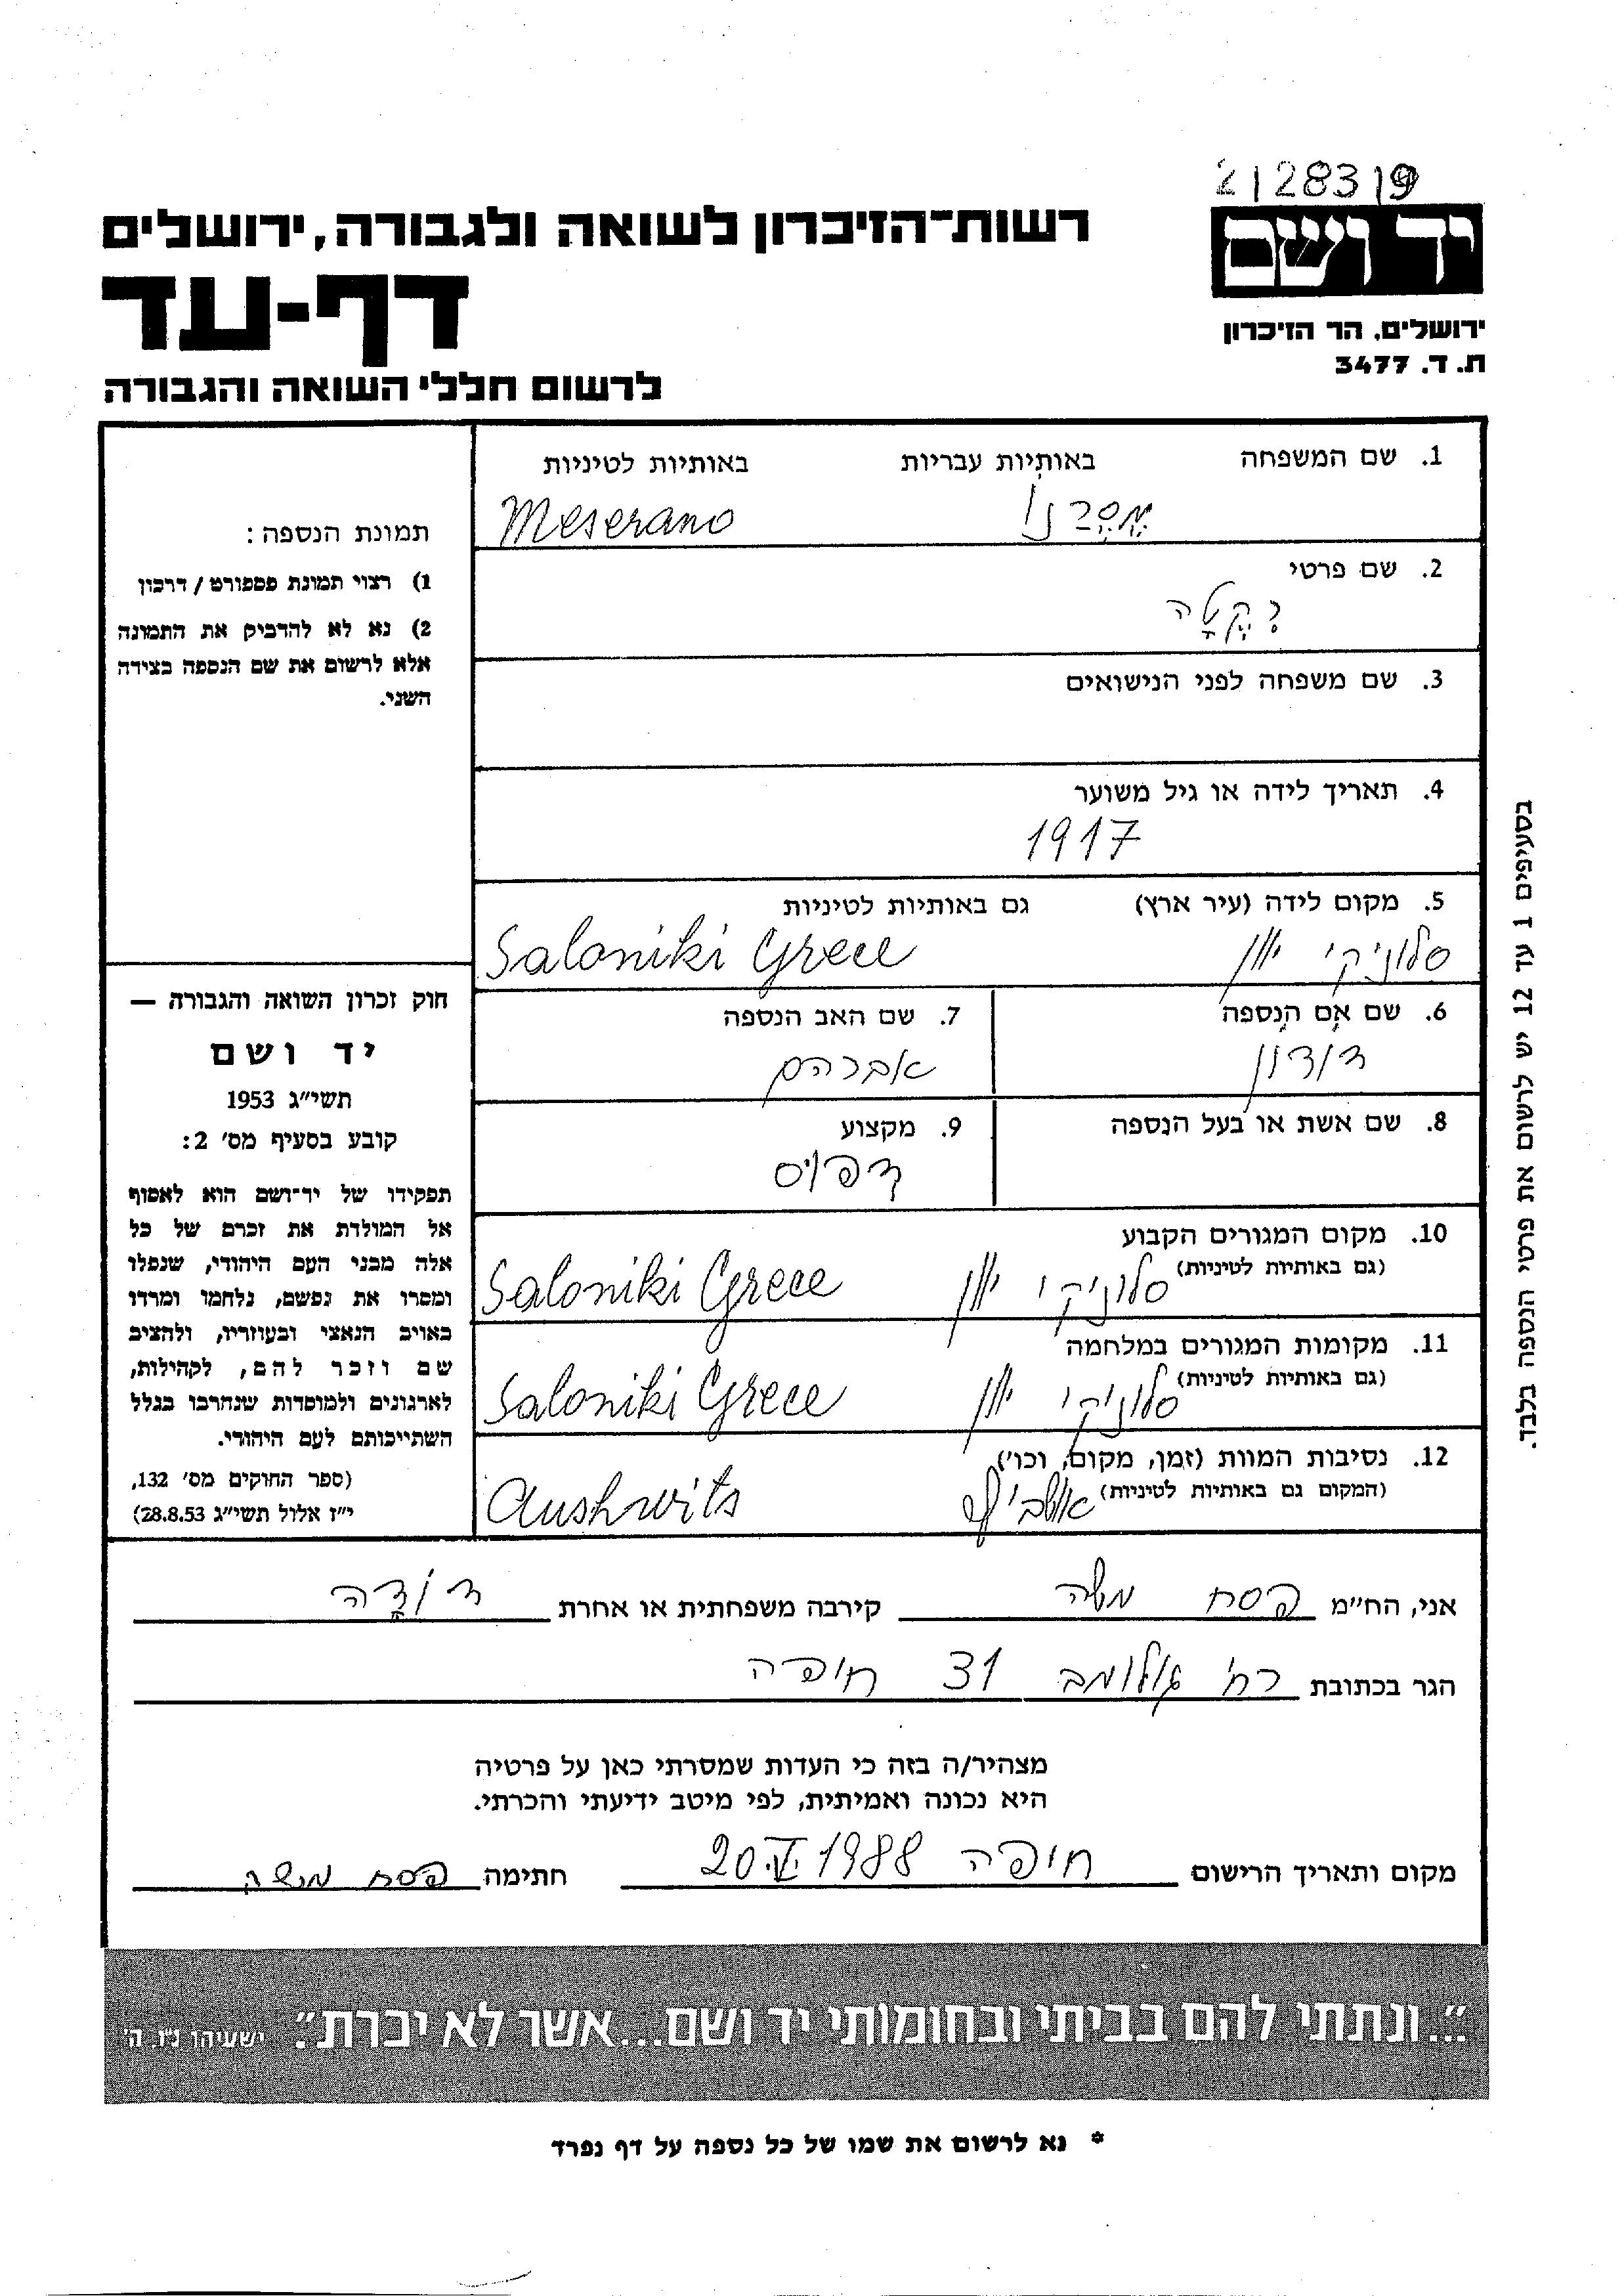 2128319
יד ושם
ירושלים, הר הזיכרון
ת. ד. 3477
רשות־הזיכרון לשואה ולגבורה, ירושלים
דף-עד
לרשום חללי השואה והגבורה
1. שם המשפחה באותיות עבריות באותיות לטיניות
מֶסֶרַנוֹ Meserano
2. שם פרטי
3. שם משפחה לפני הנישואים
4. תאריך לידה או גיל משוער
1917
5. מקום לידה (עיר ארץ) גם באותיות לטיניות
סלוניקי יוון Saloniki Grece
6. שם אם הנספה 7. שם האב הנספה
דודון אברהם
8. שם אשת או בעל הנספה 9. מקצוע
דפוס
10. מקום המגורים הקבוע
(גם באותיות לטיניות) סלוניקי יוון Saloniki Grece
11. מקומות המגורים במלחמה
(גם באותיות לטיניות) סלוניקי יוון Saloniki Grece
12. נסיבות המוות (זמן, מקום, וכו')
(המקום גם באותיות לטיניות) Aushwits
תמונת הנספה:
1) רצוי תמונת פספורט / דרכון
2) נא לא להדביק את התמונה
אלא לרשום את שם הנספה בצידה
השני.
חוק זכרון השואה והגבורה —
יד ושם
תשי״ג 1953
קובע בסעיף מס׳ 2:
תפקידו של יד־ושם הוא לאסוף
אל המולדת את זכרם של כל
אלה מבני העם היהודי, שנפלו
ומסרו את נפשם, נלחמו ומרדו
באויב הנאצי ובעוזריו, ולהציב
שם וזכר להם, לקהילות,
לארגונים ולמוסדות שנחרבו בגלל
השתייכותם לעם היהודי.
(ספר החוקים מס׳ 132,
י״ז אלול תשי״ג 28.8.53)
בסעיפים 1 עד 12 יש לרשום את פרטי הנספה בלבד.
אני, הח״מ פסח משה קירבה משפחתית או אחרת דוֹדָה
הגר בכתובת רח׳ גולומב 31 חיפה
מצהיר/ה בזה כי העדות שמסרתי כאן על פרטיה
היא נכונה ואמיתית, לפי מיטב ידיעתי והכרתי.
מקום ותאריך הרישום חיפה 20.V.1988 חתימה פסח משה
״...ונתתי להם בביתי ובחומותי יד ושם...אשר לא יכרת״. ישעיהו נ״ו, ה׳
* נא לרשום את שמו של כל נספה על דף נפרד